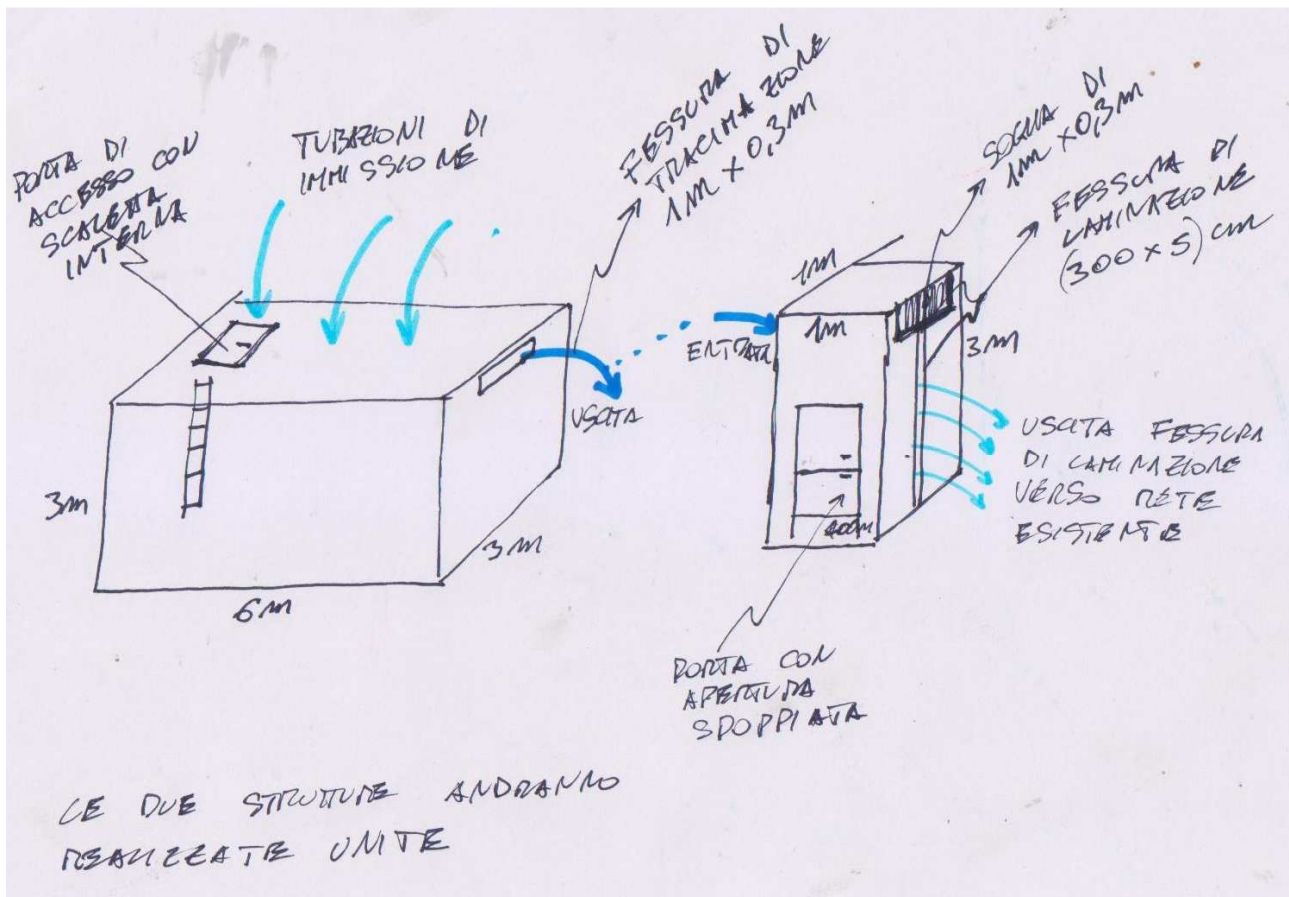 PORTA DI
ACCESSO CON
SCALETTA
INTERNA
TUBAZIONI DI
IMMISSIONE
FESSURA DI
TRACIMAZIONE
1M X 0,3M
SOGLIA DI
1M X 0,3M
FESSURA DI
LAMINAZIONE
(300 X 5) CM
1M
1M
ENTRATA
3M
USCITA
3M
3M
6M
USCITA FESSURA
DI LAMINAZIONE
VERSO RETE
ESISTENTE
PORTA CON
APERTURA
SDOPPIATA
LE DUE STRUTTURE ANDRANNO
REALIZZATE UNITE